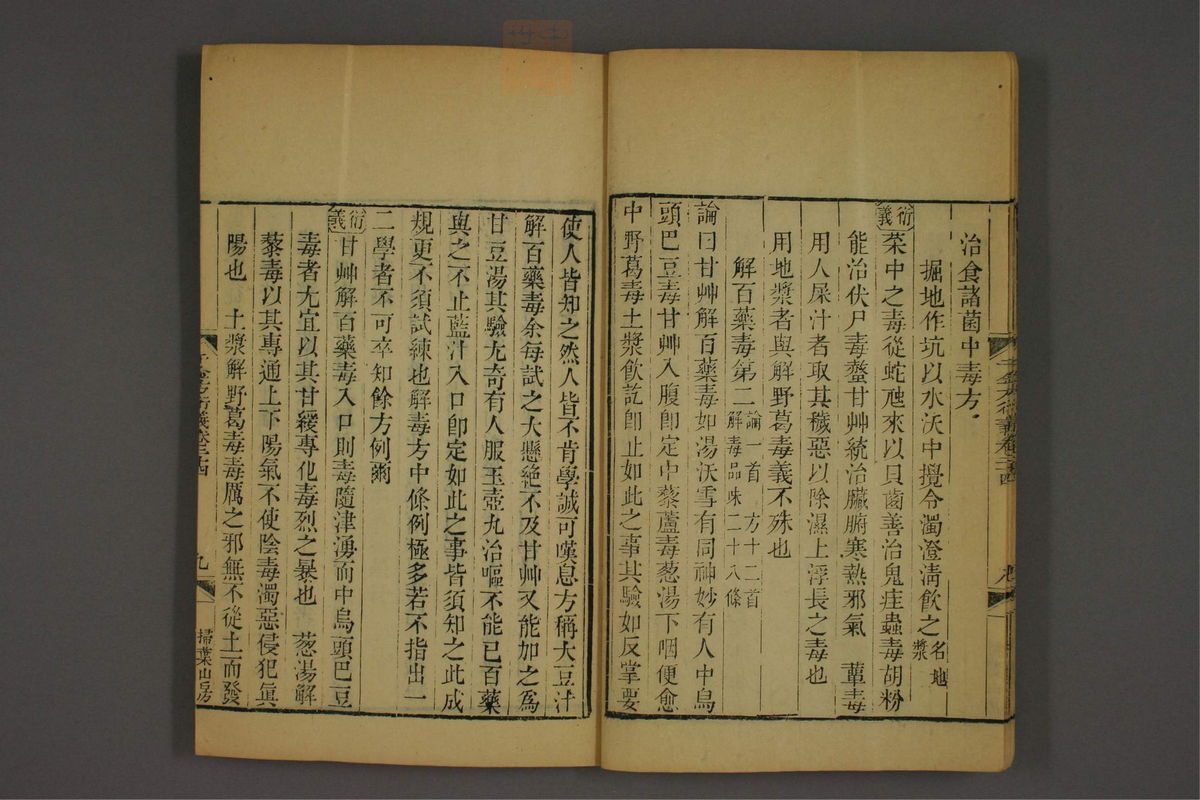 治食諸菌中毒方
掘地作坑以水沃中攪令濁澄清飲之名地漿
衍義
菜中之毒從蛇虺來以貝齒善治鬼疰蟲毒胡粉
能治伏尸毒螫甘艸統治臟腑寒熱邪氣　蕈毒
用人屎汁者取其穢惡以除濕上浮長之毒也
用地漿者與解野葛毒義不殊也
解百藥毒第二論一首　方十二首　解毒品味二十八條
論曰甘艸解百藥毒如湯沃雪有同神妙有人中烏
頭巴豆毒甘艸入腹卽定中藜蘆毒葱湯下咽便愈
中野葛毒土漿飲訖卽止如此之事其驗如反掌要
使人皆知之然人皆不肯學誠可嘆息方稱大豆汁
解百藥毒余每試之大懸絶不及甘艸又能加之爲
甘豆湯其驗尤奇有人服玉壺丸治嘔不能已百藥
與之不止藍汁入口卽定如此之事皆須知之此成
規更不須試練也解毒方中條例極多若不指出一
二學者不可卒知餘方例爾
衍義
甘艸解百藥毒入口則毒隨津湧而中烏頭巴豆
毒者尤宜以其甘緩專化毒烈之暴也　葱湯解
藜毒以其專通上下陽氣不使陰毒濁惡侵犯眞
陽也　土漿解野葛毒毒厲之邪無不從土而發
千金方衍義卷二十四
九
掃葉山房